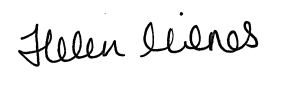 Helen Milnes